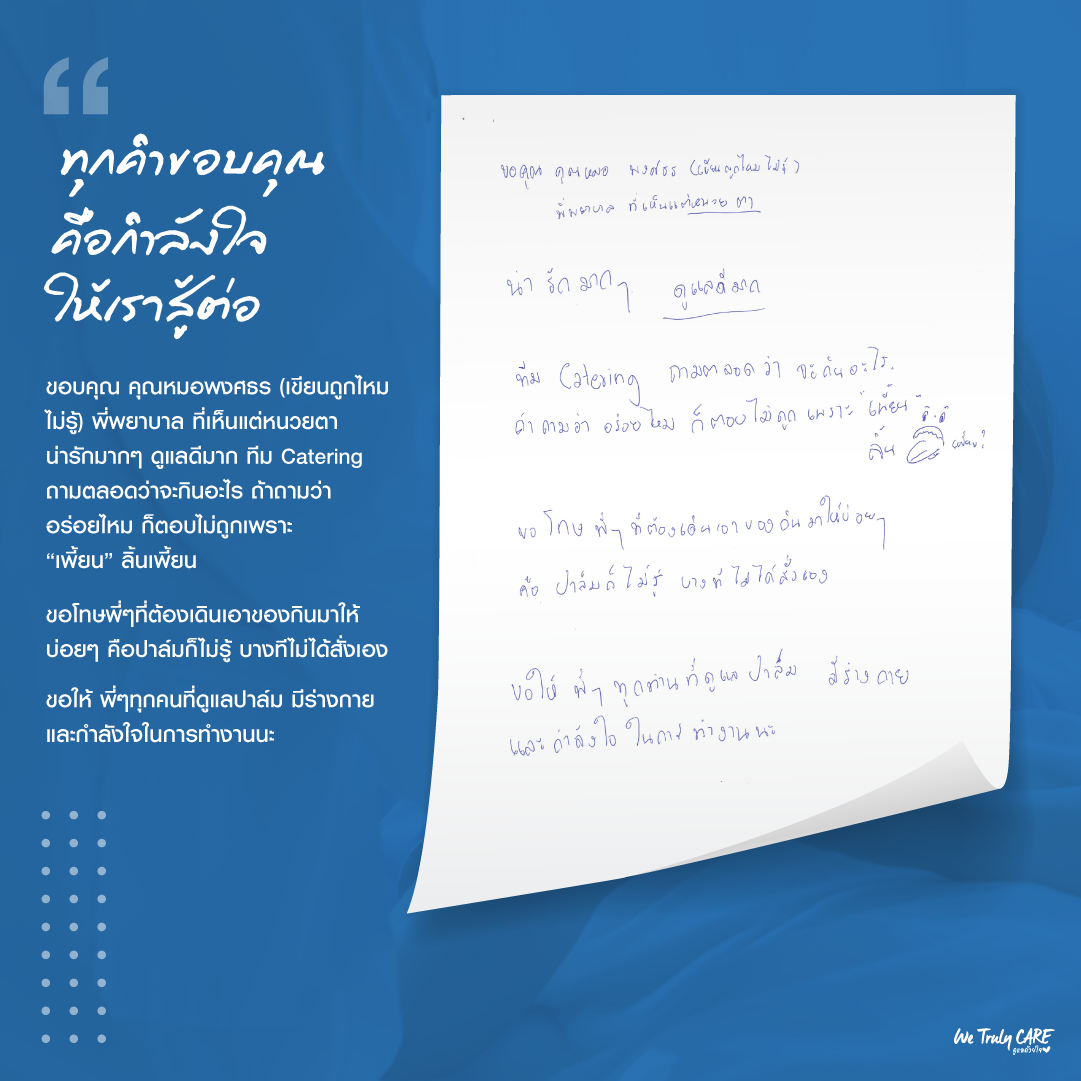 ทุกคำขอบคุณ
คือกำลังใจ
ให้เราสู้ต่อ
ขอบคุณ คุณหมอพงศธร (เขียนถูกไหม
ไม่รู้) พี่พยาบาล ที่เห็นแต่หนวยตา
น่ารักมากๆ ดูแลดีมาก ทีม Catering
ถามตลอดว่าจะกินอะไร ถ้าถามว่า
อร่อยไหม ก็ตอบไม่ถูกเพราะ
“เพี้ยน” ลิ้นเพี้ยน
ขอโทษพี่ๆที่ต้องเดินเอาของกินมาให้
บ่อยๆ คือปาล์มก็ไม่รู้ บางทีไม่ได้สั่งเอง
ขอให้ พี่ๆทุกคนที่ดูแลปาล์ม มีร่างกาย
และกำลังใจในการทำงานนะ
ขอคุณ คุณหมอ พงศธร (เขียนถูกไหมไม่รู้)
พี่พยาบาล ที่เห็นแต่หนวย ตา
น่า รัก มากๆ ดูแลดีมาก
ทีม Catering ถามตลอดว่า จะกินอะไร
ถ้าถามว่า อร่อยไหม ก็ตอบไม่ถูก เพราะ "เพี้ยน"
ลิ้น
ขอโทษ พี่ๆ ที่ต้องเดินเอาของกินมาให้บ่อยๆ
คือ ปาล์มก็ไม่รู้ บางทีไม่ได้สั่งเอง
ขอให้ พี่ๆ ทุกท่านที่ดูแล ปาล์ม มีร่างกาย
และกำลังใจ ในการทำงานนะ
We Truly CARE
ดูแลด้วยใจ